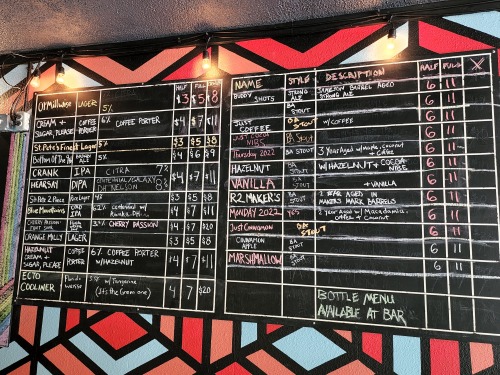 HALF FULL
OL' Milllwose LAGER 5% $3 $5 $8
CREAM + SUGAR, PLEASE COFFEE PORTER 6% COFFEE PORTER $4 $7 $11
St. Pete's Finest Lager 5% $3 $5 $8
$4 $6 $9
CRANK IPA CITRA 7%
HEARSAY DIPA DH NELSON 8% $4 $7 $11
$3 $5 $8
Blue Mountains $4 $7 $11
CHERRY PASSION $4 $7 $11
ORANGE MILLY LAGER $3 $5 $8
HAZELNUT CREAM + SUGAR, PLEASE COFFEE PORTER 6% COFFEE PORTER W/HAZELNUT $4 $7 $11
ECTO COOLINER w/ Tangerine
(It's the Green one) 4 7 $20
NAME STYLE DESCRIPTION HALF FULL X
BUDDY SHOTS STRONG ALE BARREL AGED STRONG ALE 6 11
JUST COFFEE STOUT W/COFFEE 6 11
JUST COCO NIBS BA STOUT 6 11
Thursday 2022 BA STOUT 3 Year Aged w/ Maple, Coconut + Coffee 6 11
HAZELNUT BA STOUT W/HAZELNUT + COCOA NIBS 6 11
VANILLA BA STOUT + VANILLA 6 11
R2 MAKER'S BA STOUT YEAR AGED IN MAKERS MARK BARRELS 6 11
MONDAY 2022 YES 2 Year Aged w/ Macadamia, Coffee + Coconut 6 11
Just Cinnamon STOUT 6 11
CINNAMON APPLE BA STOUT 6 11
MARSHMALLOW BA STOUT 6 11
BOTTLE MENU
AVAILABLE AT BAR